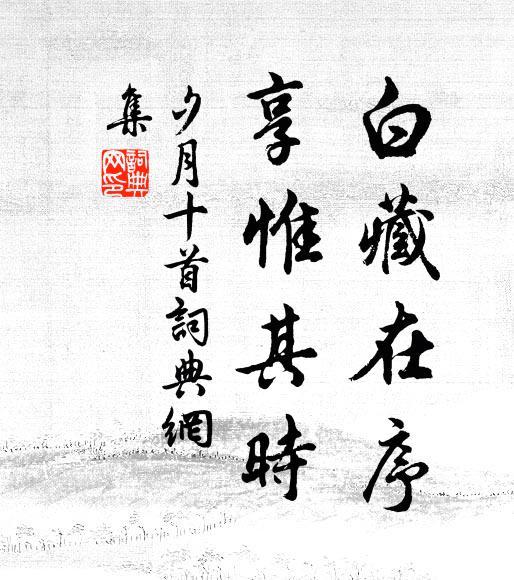 白藏在序
享惟其時
夕月十首詞典網
集
詞典網印